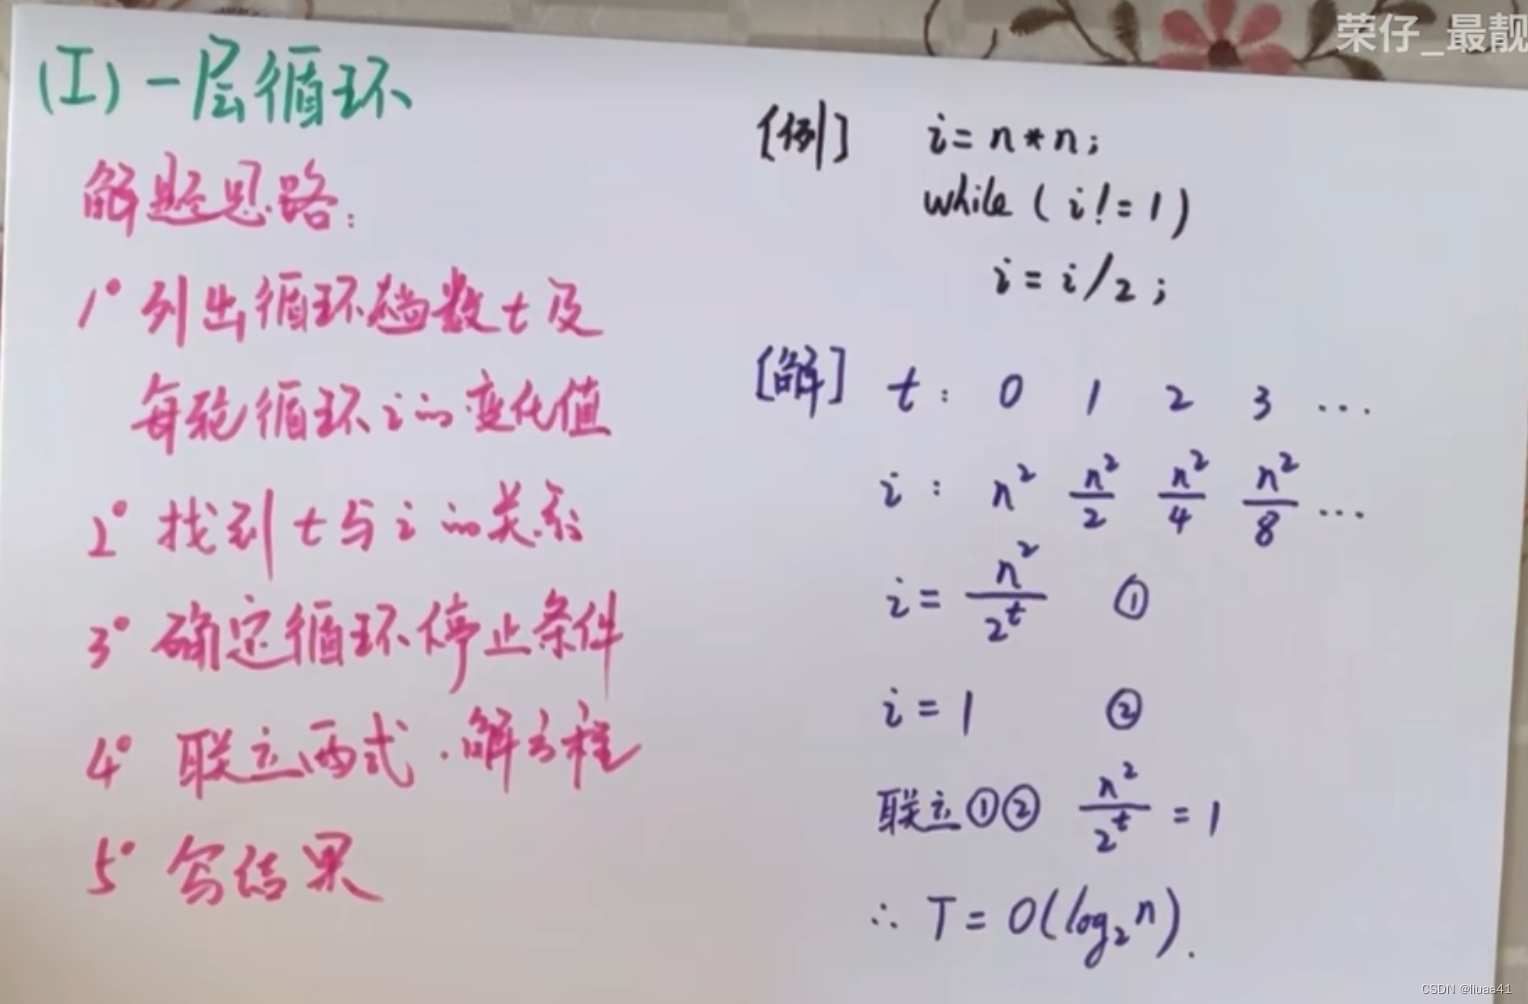 荣仔_最靓
(I) 一层循环
解题思路:
1° 列出循环趟数t及
每轮循环i的变化值
2° 找到t与i的关系
3° 确定循环停止条件
4° 联立两式.解方程
5° 写结果
[例] i=n*n;
while(i!=1)
i=i/2;
[解] t: 0 1 2 3 ...
i: n² n²/2 n²/4 n²/8 ...
i=n²/2^t ①
i=1 ②
联立①② n²/2^t=1
∴ T=O(log₂n).
CSDN @liuaa41